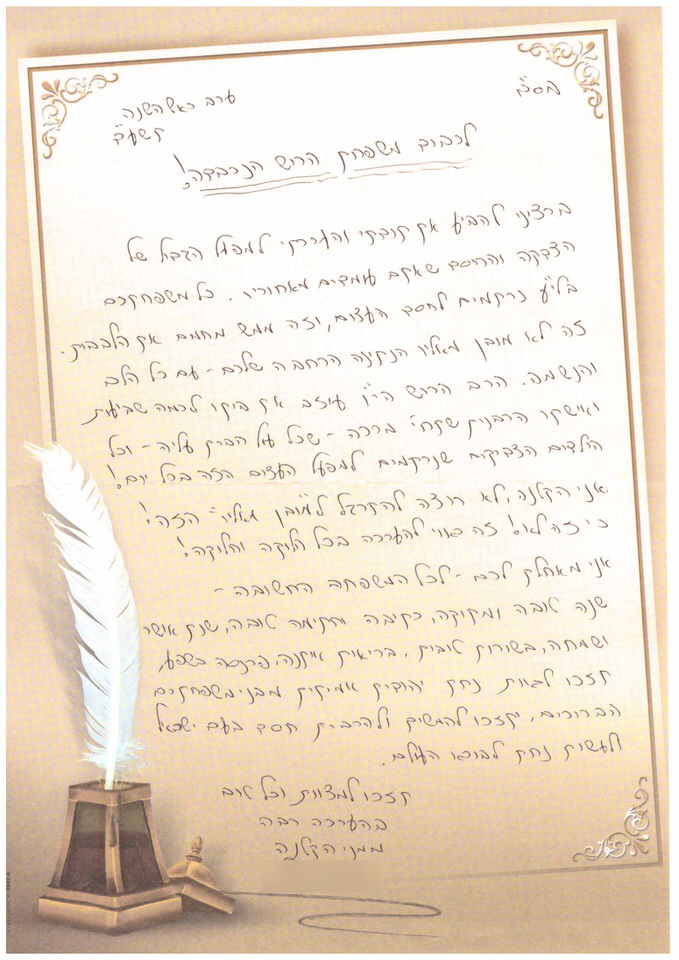 בסד
ערב ראש השנה
תשע"ב
לכבוד משפחת הרוש הנכבדה!
ברצוני להביע את תודתי והערכתי למפעל הגדול של
הצדקה והחסד שאתם עומדים מאחוריו. כל משפחתכם
בלי"ע נרתמים לחסד העצום, וזה ממש מחמם את הלבבות.
זה לא מובן מאליו הנתינה הרחבה שלכם - עם כל הלב
והנשמה. הרב הרוש הי"ו עוזב את ביתו לכמה שבועות
ואישתו הרבנית שתח' ברכה - שכל עול הבית עליה - וכל
הילדים הצדיקים שנרתמים למפעל העצום הזה בכל יום!
אני הקטנה, לא רוצה להתרגל ל"מובן מאליו" הזה!
כי זה לא! זה ראוי להערכה בכל חליפה וחליפה!
אני מאחלת לכם - לכל המשפחה החשובה -
שנה טובה ומתוקה, כתיבה וחתימה טובה, שנת אושר
ושמחה, בשורות טובות, בריאות איתנה, פרנסה בשפע,
תזכו לרוות נחת יהודית אמיתית מבני משפחתכם
הברוכים, תזכו להמשיך ולהרבות חסד בעם ישראל
ולעשות נחת לבורא העולם.
תזכו למצוות וכל טוב
בהערכה רבה
ממני הקטנה